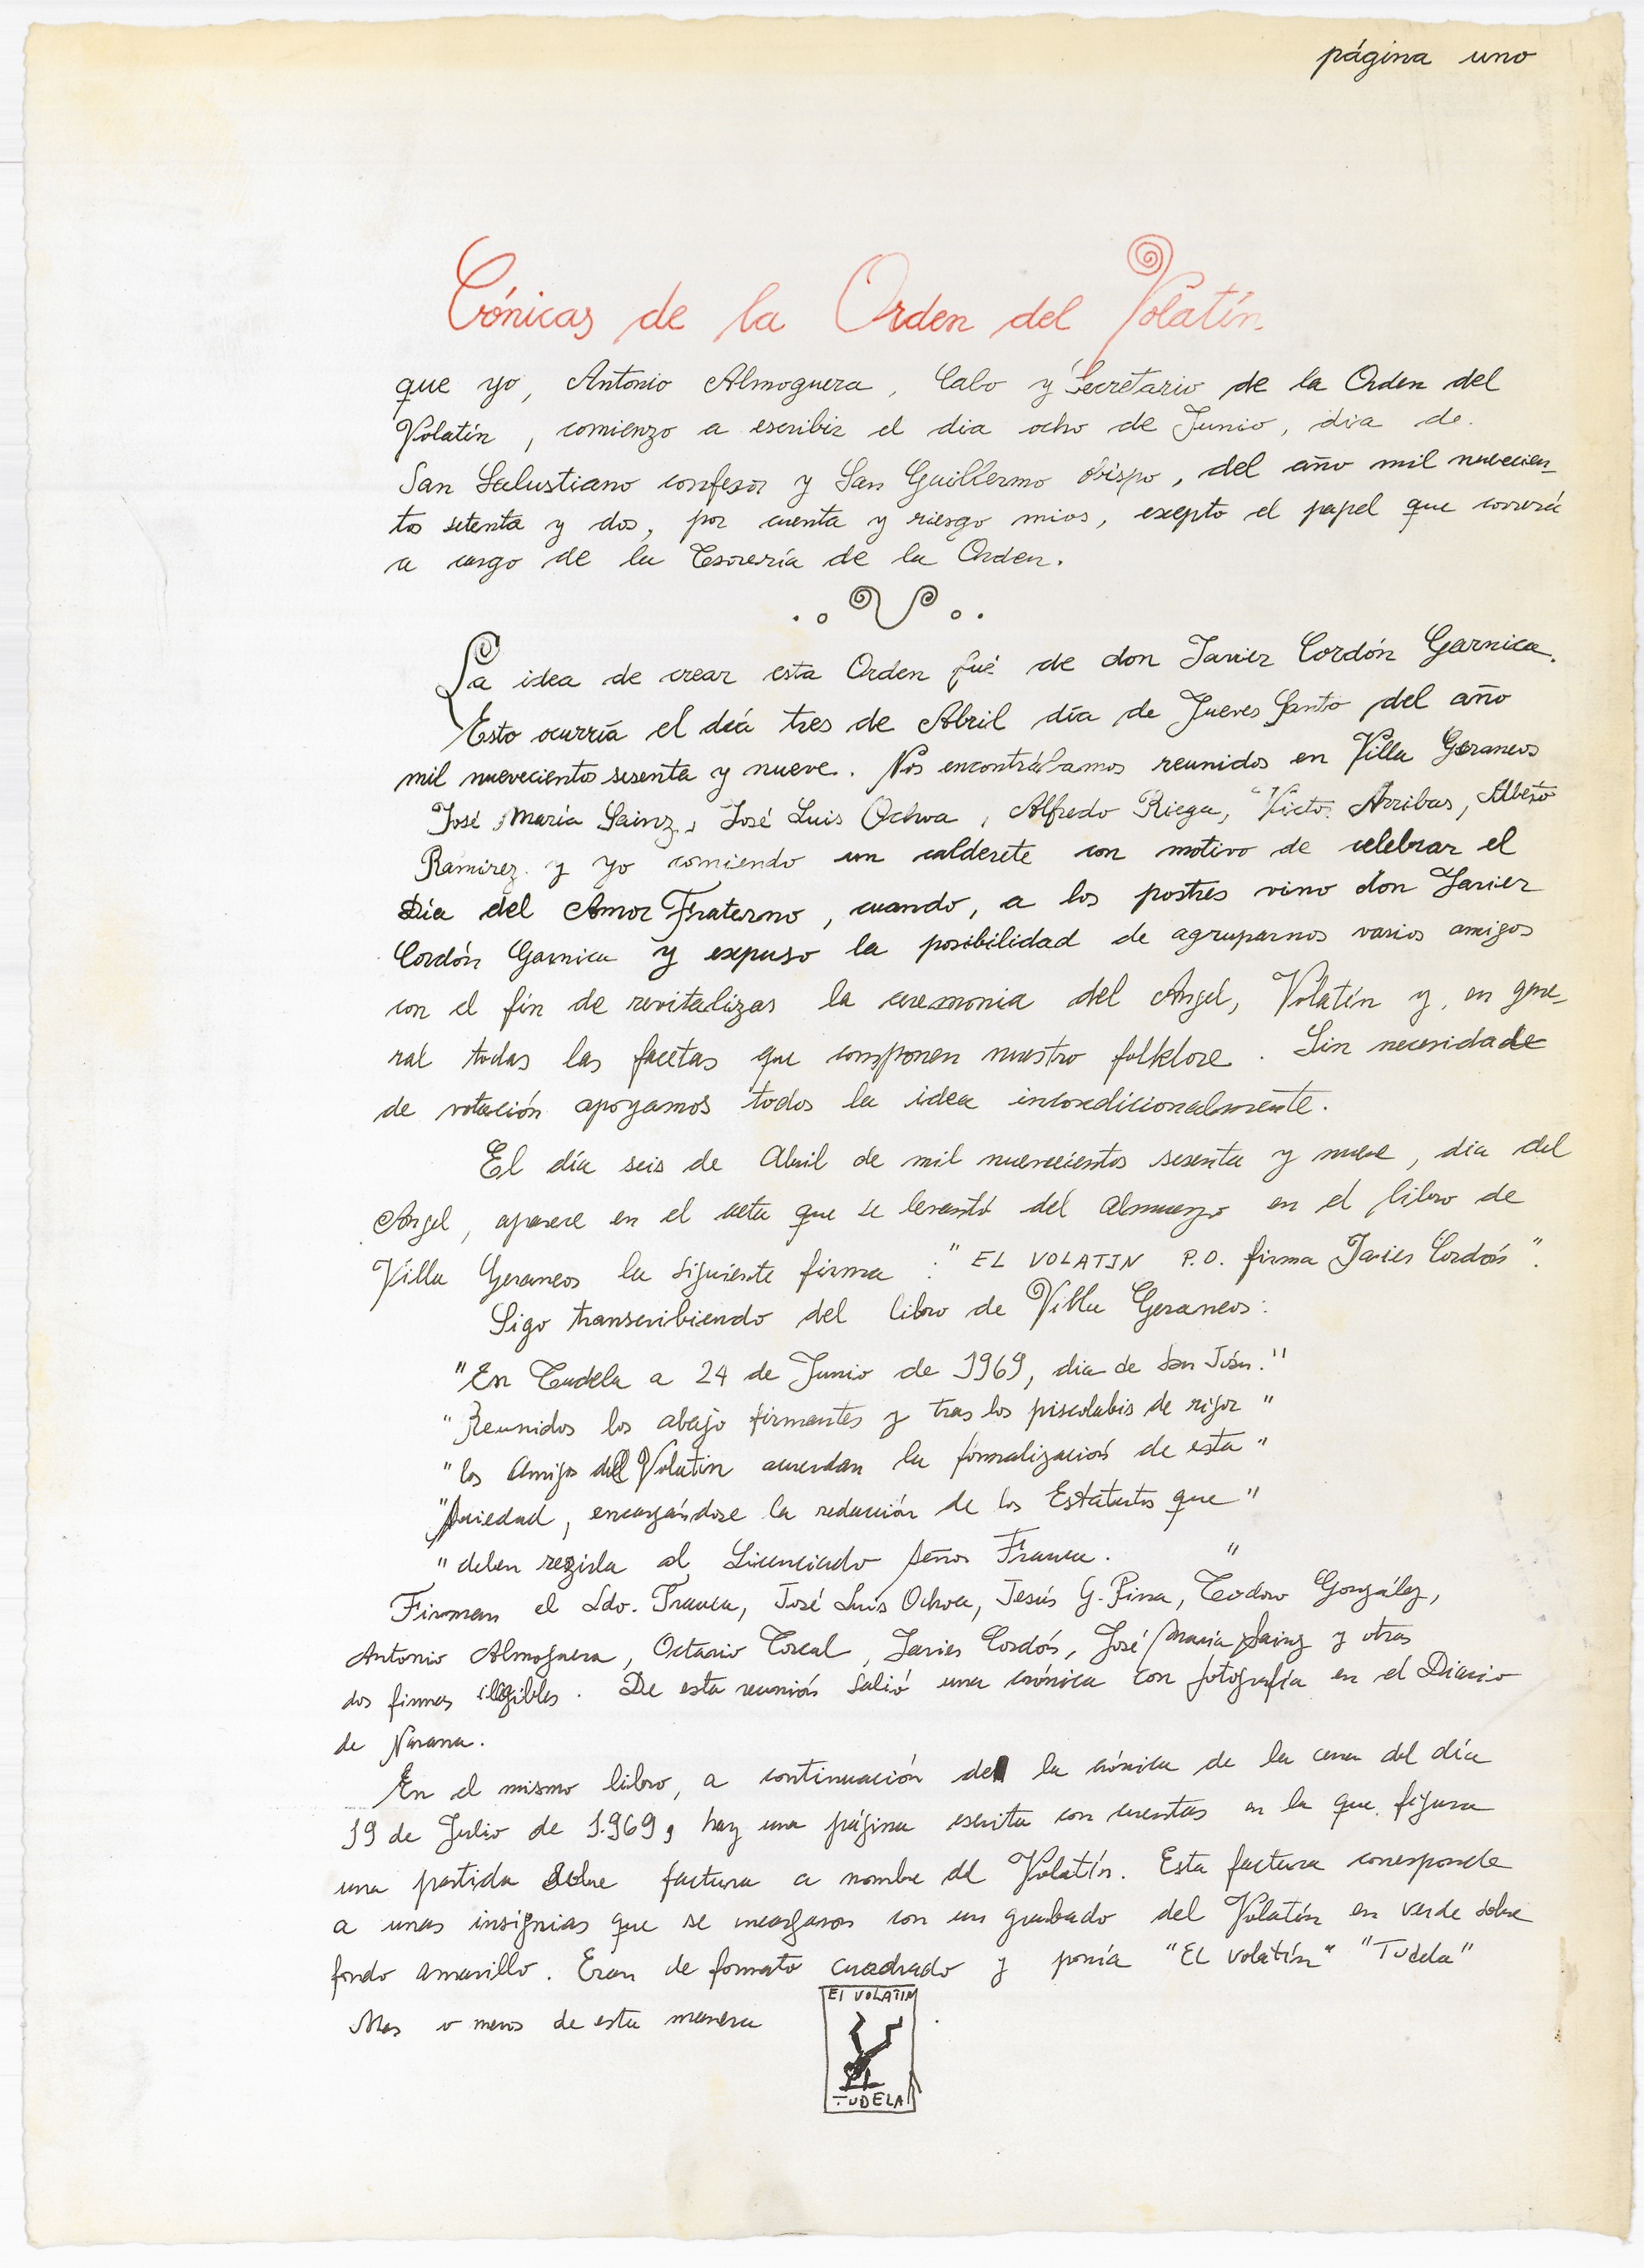 página uno
Crónicas de la Orden del Volatín
que yo, Antonio Almoguera, Cabo y Secretario de la Orden del
Volatín, comienzo a escribir el dia ocho de Junio, dia de
San Salustiano confesor y San Guillermo obispo, del año mil novecien-
tos setenta y dos, por cuenta y riesgo mios, exepto el papel que correrá
a cargo de la Tesorería de la Orden.
La idea de crear esta Orden fué de don Javier Cordón Garnica.
Esto ocurría el día tres de Abril día de Jueves Santo del año
mil nuevecientos sesenta y nueve. Nos encontrábamos reunidos en Villa Geraneos
José María Sainz, José Luis Ochoa, Alfredo Riega, Victor Arribas, Alberto
Ramirez y yo comiendo un calderete con motivo de celebrar el
Día del Amor Fraterno, cuando, a los postres vino don Javier
Cordón Garnica y expuso la posibilidad de agruparnos varios amigos
con el fin de revitalizar la ceremonia del Angel, Volatín y, en gene-
ral todas las facetas que componen nuestro folklore. Sin necesidade
de votación apoyamos todos la idea incondicionalmente.
El día seis de Abril de mil nuevecientos sesenta y nueve, dia del
Angel, aparece en el acta que se levantó del almuerzo en el libro de
Villa Geraneos la siguiente firma : "EL VOLATIN P.O. firma Javier Cordón".
Sigo transcribiendo del libro de Villa Geraneos:
"En Tudela a 24 de Junio de 1969, dia de San Juán."
"Reunidos los abajo firmantes y tras los piscolabis de rigor"
"los Amigos del Volatin acuerdan la formalización de esta"
"Sociedad, encargándose la redacción de los Estatutos que"
"deben regirla al Licenciado señor Frauca. "
Firman el Ldo. Frauca, José Luis Ochoa, Jesús G. Pina, Teodoro González,
Antonio Almoguera, Octavio Toral, Javier Cordón, José María Sainz y otras
dos firmas ilegibles. De esta reunión salió una crónica con fotografía en el Diario
de Navarra.
En el mismo libro, a continuación de la crónica de la cena del día
19 de Julio de 1.969, hay una página escrita con cuentas en la que figura
una partida sobre factura a nombre del Volatín. Esta factura corresponde
a unas insignias que se encargaron con un grabado del Volatín en verde sobre
fondo amarillo. Eran de formato cuadrado y ponía "El volatín" "Tudela"
Mas o menos de esta manera
El VOLATIN
TUDELA